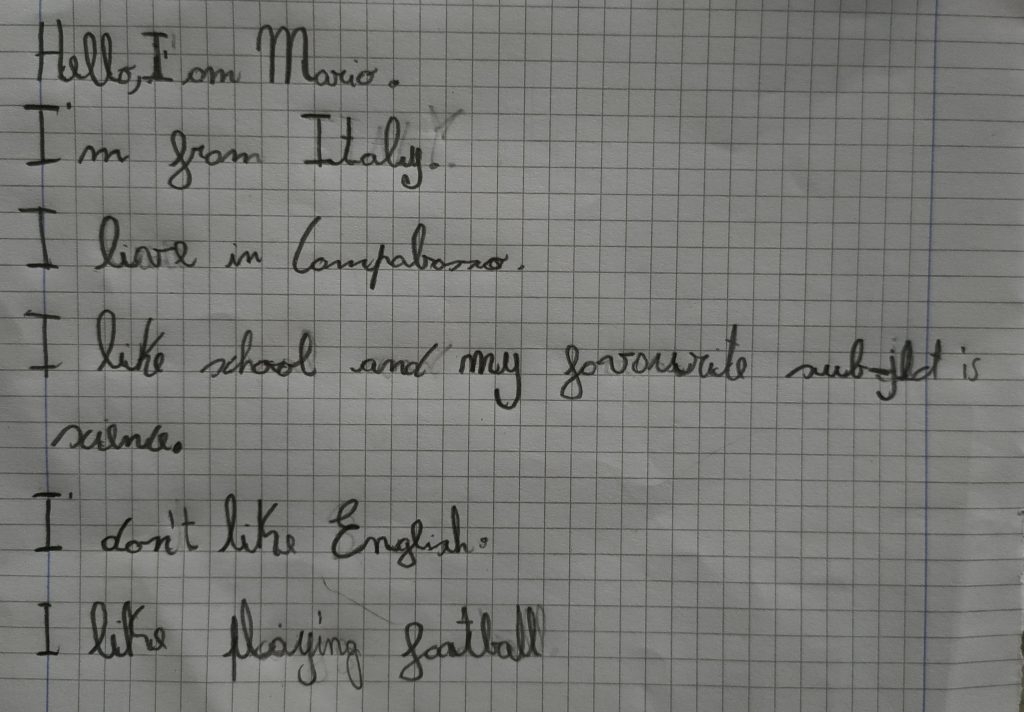 Hello, I am Mario.
I'm from Italy.
I live in Campobasso.
I like school and my favourite subject is
science.
I don't like English.
I like playing football